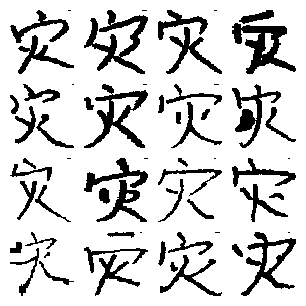 灾灾灾灾
灾灾灾灾
灾灾灾灾
灾灾灾灾